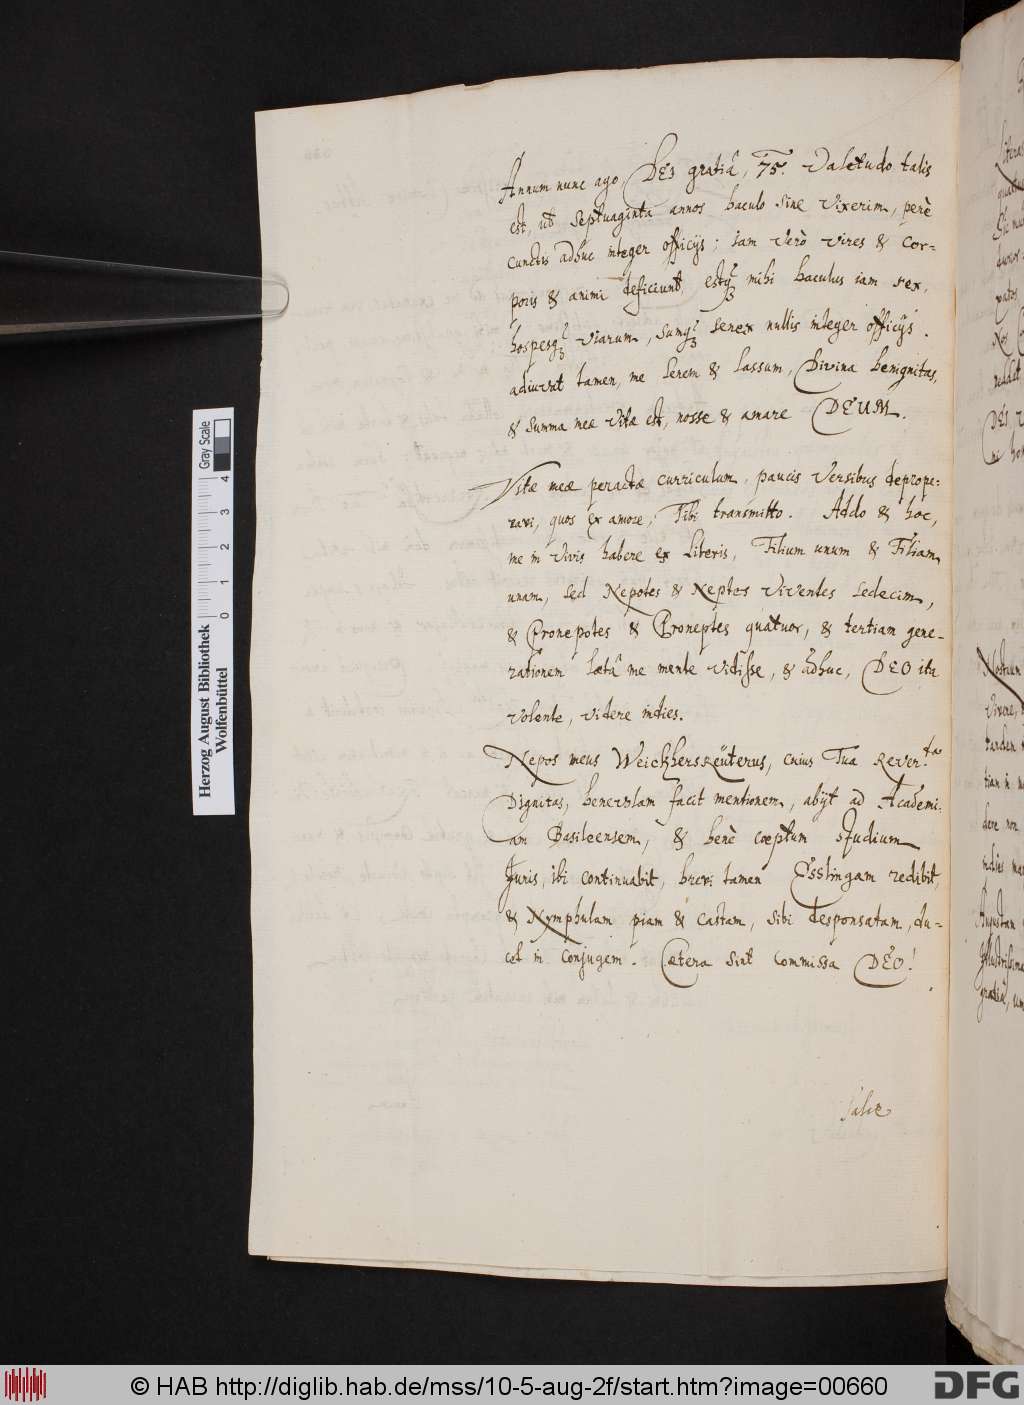 Annum nunc ago DEI gratiâ, 75. Valetudo talis
est, ut septuaginta annos baculo sine vixerim, penè
cunctis adhuc integer officijs; iam verò vires & cor-
poris & animi deficiunt, estq; mihi baculus iam rex,
hospesq; viarum, sumq; senex nullis integer officijs.
adiuvat tamen, me senem & lassum, Divina benignitas,
& summa meæ vitæ est, nosse & amare DEUM.
Vitæ meæ peractæ curriculum, paucis versibus deprope-
ravi, quos ex amore, Tibi transmitto. Addo & hoc,
me in vivis habere ex liberis, Filium unum & Filiam
unam, sed Nepotes & Neptes viventes sedecim,
& Pronepotes & Proneptes quatuor, & tertiam gene-
rationem lætâ me mente vidisse, & adhuc, DEO ita
volente, videre indies.
Nepos meus Weickhersreüterus, cuius Tua Rever.ta
Dignitas, benevolam facit mentionem, abijt ad Academi-
am Basileensem, & benè cœptum studium
Juris, ibi continuabit, brevi tamen Esslingam redibit,
& Nymphulam piam & castam, sibi desponsatam, du-
cet in conjugem. Cætera sint commissa DEO!
Herzog August Bibliothek
Wolfenbüttel
0 1 2 3 4
Gray Scale
© HAB http://diglib.hab.de/mss/10-5-aug-2f/start.htm?image=00660
DFG